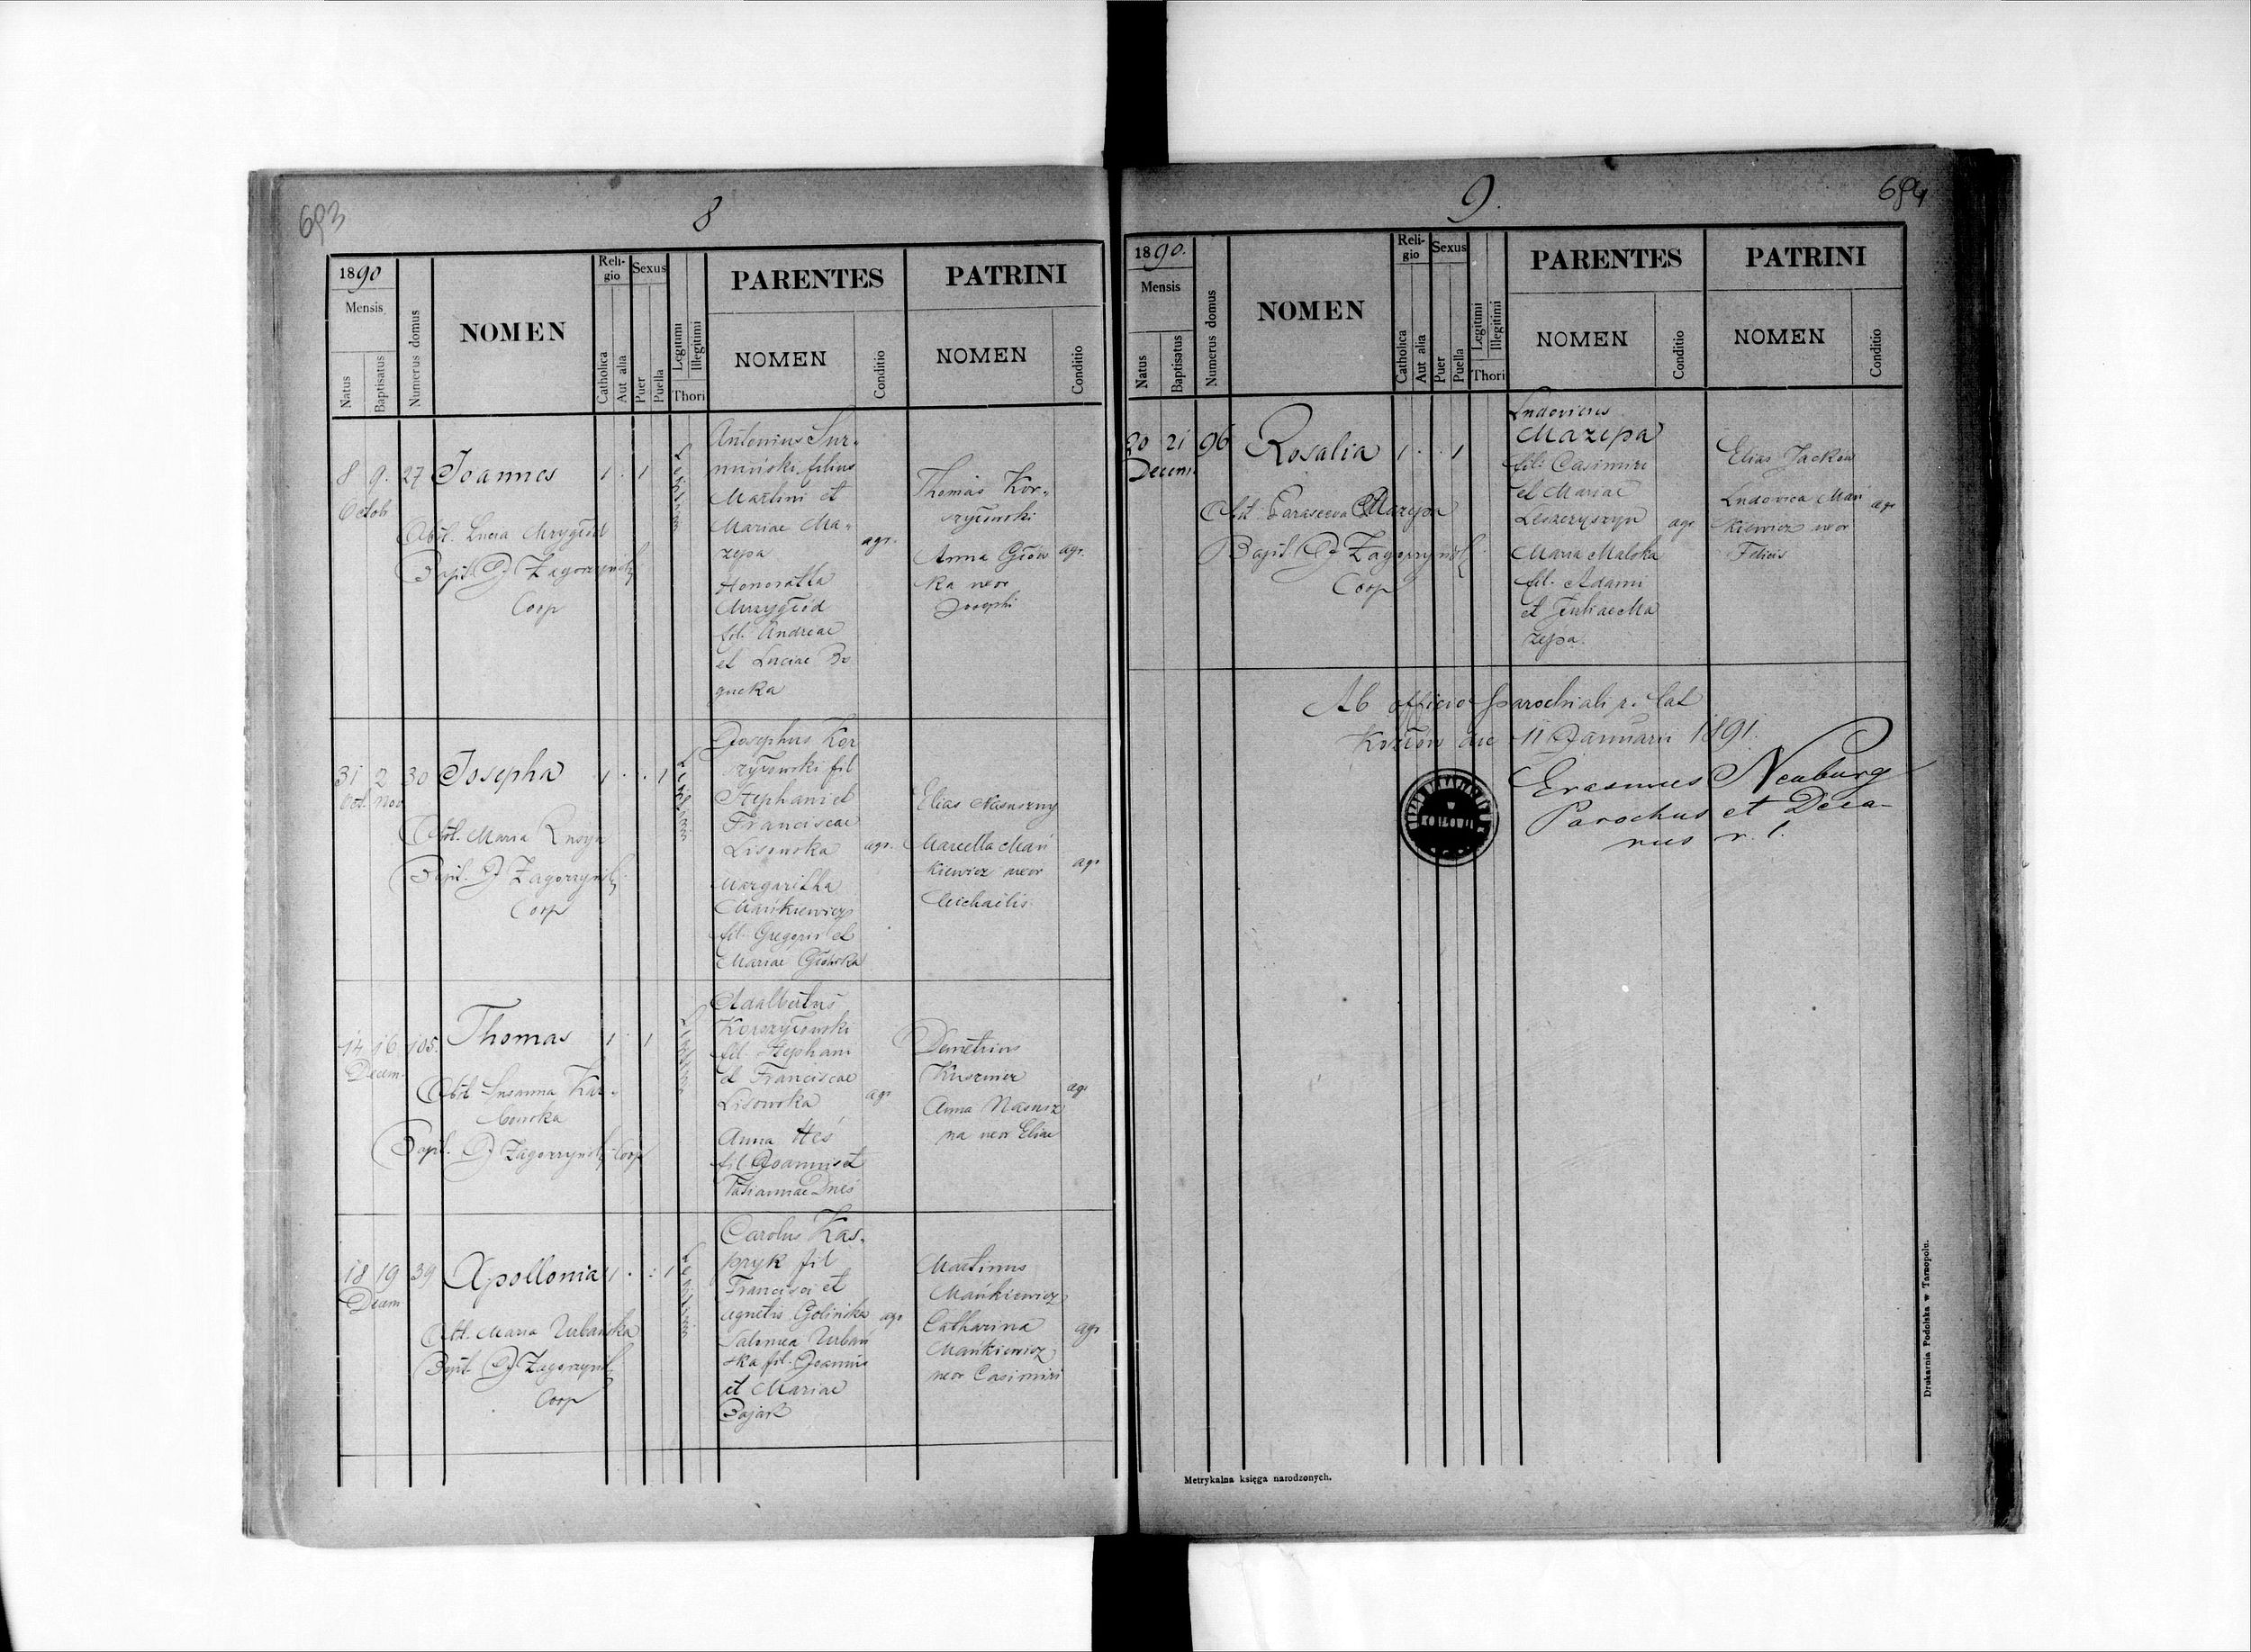 693
8
1890
Mensis
Natus
Baptisatus
Numerus domus
NOMEN
Reli-
gio
Catholica
Aut alia
Sexus
Puer
Puella
Legitimi
Illegitimi
Thori
PARENTES
NOMEN
Conditio
PATRINI
NOMEN
Conditio
8 9. 27 Joannes 1 . 1
Octob
Obst. Lucia Mrzygłód
Bapt. J Zagorzyński
Coop
Legitimi
Antonius Sur-
miński filius
Martini et
Mariae Ma-
zepa
Honoratta
Mrzygłód
fil. Andreae
et Luciae Bo
gucka
agr.
Thomas Kor-
życzowski
Anna Głow
ka uxor
Josephi
agr.
31 2 30 Josepha 1 . . 1
Oct. Nov
Obst. Maria
Bapt. J Zagorzyński
Coop
Legitimi
Josephus Kor
fil
Stephani et
Franciscae
Lisowska
Margaritha
Mańkiewicz
fil. Gregorii et
Mariae Głowka
agr.
Elias Nasuszny
Marcella Mań
kiewicz uxor
Michaelis
agr
14 16 105. Thomas 1 . 1
Decem.
Obst Susanna Kar-
bowska
Bapt. J Zagorzyński Coop
Legitimi
Adalbertus
fil Stephani
et Franciscae
Lisowska
Anna Heś
fil. Joannis et
Tatiannae Dneś
agr
Demetrius
Kusznier
Anna Nasusz
na uxor Eliae
agr
18 19 39 Apollonia 1 . : 1
Decem
Obst. Maria Urbańska
Bapt J Zagorzyński
Coop
Legitimi
Carolus Kas-
pryk fil
Francisci et
Agnetis Golińska
Urbań
ska fil. Joannis
et Mariae
Bojar
agr
Martinus
Mańkiewicz
Catharina
Mańkiewicz
uxor Casimiri
agr
9.
694
1890.
Mensis
Natus
Baptisatus
Numerus domus
NOMEN
Reli-
gio
Catholica
Aut alia
Sexus
Puer
Puella
Legitimi
Illegitimi
Thori
PARENTES
NOMEN
Conditio
PATRINI
NOMEN
Conditio
20 21 96 Rosalia 1 . . 1
Decem.
Obst. Parasceva Mazepa
Bapt. J Zagorzyński
Coop
Ludovicus
Mazepa
fil. Casimiri
et Mariae
Leszczyszyn
Maria Malska
fil. Adami
et Juliae Ma
zepa.
agr
Elias Jackow
Ludovica Mań
kiewicz uxor
Felicis
agr
Ab officio parochiali r. lat
Kozłów die 11 Januarii 1891.
Erasmus Neuburg
Parochus et Deca-
nus r. l.
W
KOZŁOWIE
Metrykalna księga narodzonych.
Drukarnia Podolska w Tarnopolu.